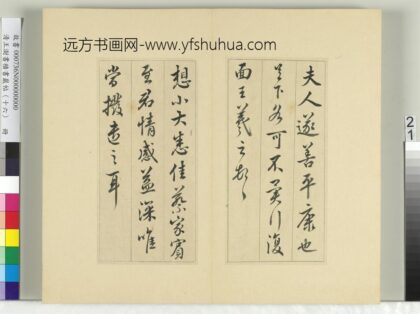 远方书画网-www.yfshuhua.com
夫人遂善平康也
足下各可不冀行復
面王羲之頓首
想小大悉佳蔡家賓
至君情感益深唯
當撥遣之耳
故書 000736N000000000
清王澍書積書巖帖(十六) 冊